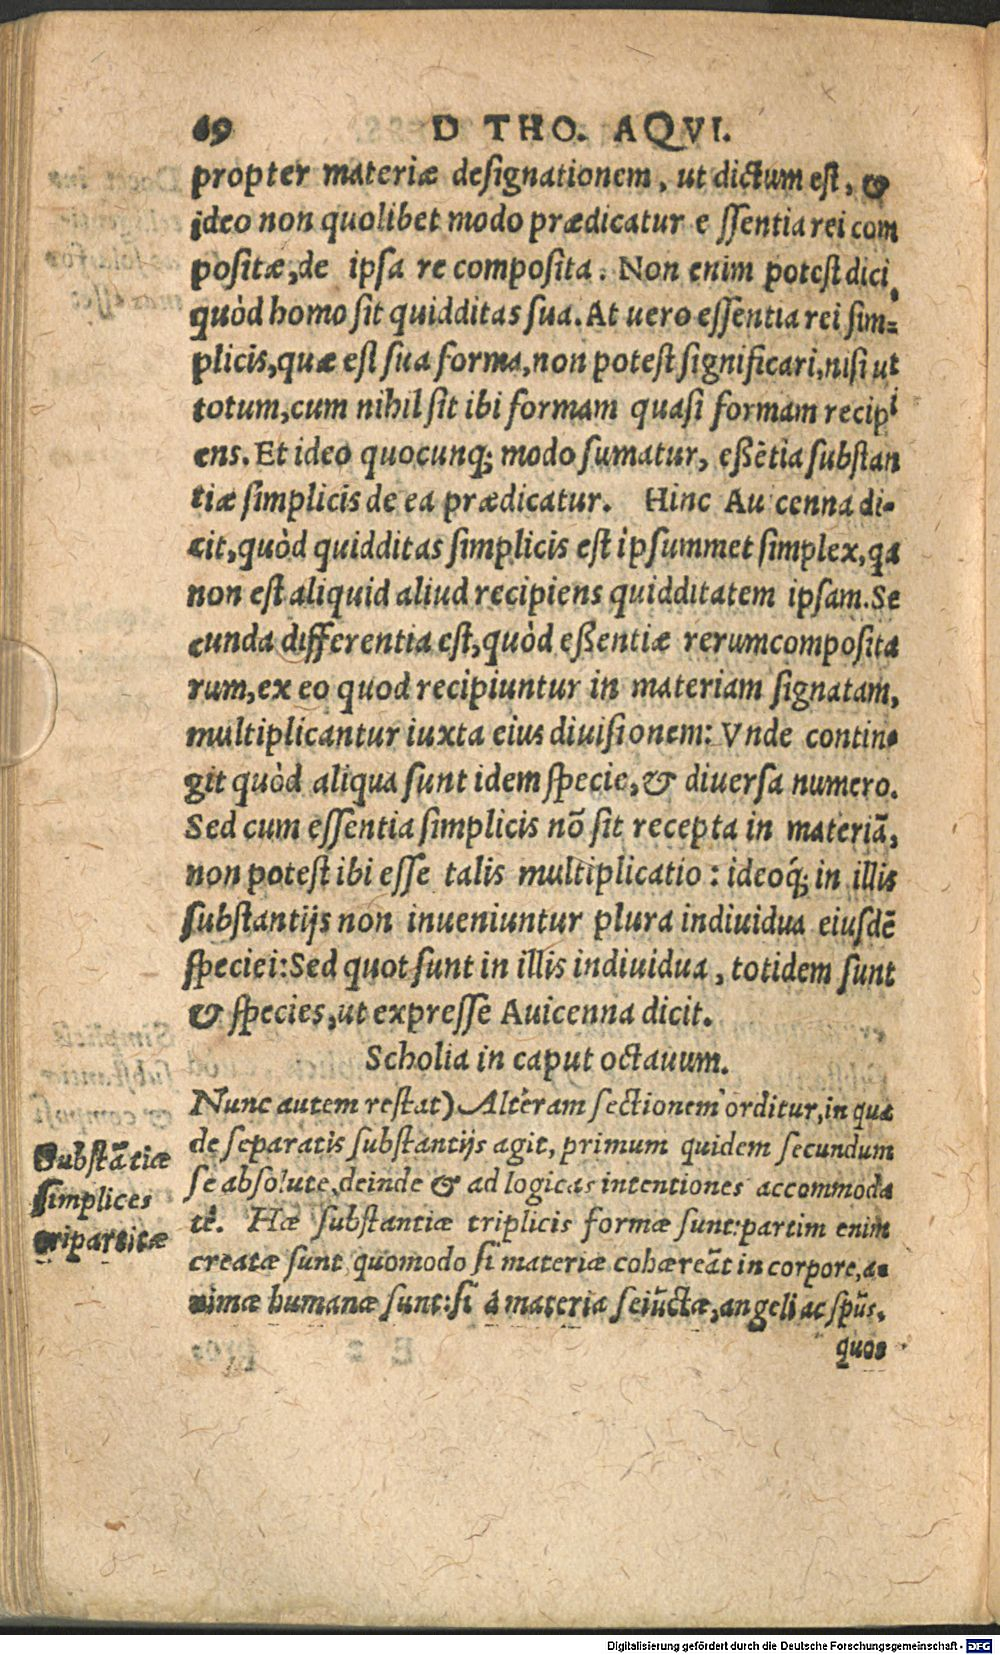 69 D THO. AQVI.
propter materiæ designationem, ut dictum est, &
ideo non quolibet modo prædicatur e ssentia rei com
positæ, de ipsa re composita. Non enim potest dici,
quòd homo sit quidditas sua. At uero essentia rei sim=
plicis, quæ est sua forma, non potest significari, nisi ut
totum, cum nihil sit ibi formam quasi formam recipi
ens. Et ideo quocunq; modo sumatur, eßẽtia substan
tiæ simplicis de ea prædicatur. Hinc Aui cenna di-
cit, quòd quidditas simplicis est ipsummet simplex, qa
non est aliquid aliud recipiens quidditatem ipsam. Se
cunda differentia est, quòd eßentiæ rerumcomposita
rum, ex eo quod recipiuntur in materiam signatam,
multiplicantur iuxta eius diuisionem: Vnde contin-
git quòd aliqua sunt idem specie, & diuersa numero.
Sed cum essentia simplicis nõ sit recepta in materiã,
non potest ibi esse talis multiplicatio: ideoq́; in illis
substantijs non inueniuntur plura indiuidua eiusdẽ
speciei: Sed quot sunt in illis indiuidua, totidem sunt
& species, ut expresse Auicenna dicit.
Scholia in caput octauum.
Nunc autem restat) Alteram sectionem orditur, in qua
de separatis substantijs agit, primum quidem secundum
se absolute, deinde & ad logicas intentiones accommoda
tè. Hæ substantiæ triplicis formæ sunt: partim enim
creatæ sunt, quomodo si materiæ cohæreãt in corpore, a-
nimæ humanæ sunt: si à materia seiũctæ, angeli ac spũs.
quos
Substãtiæ
simplices
tripartitæ
Digitalisierung gefördert durch die Deutsche Forschungsgemeinschaft - DFG